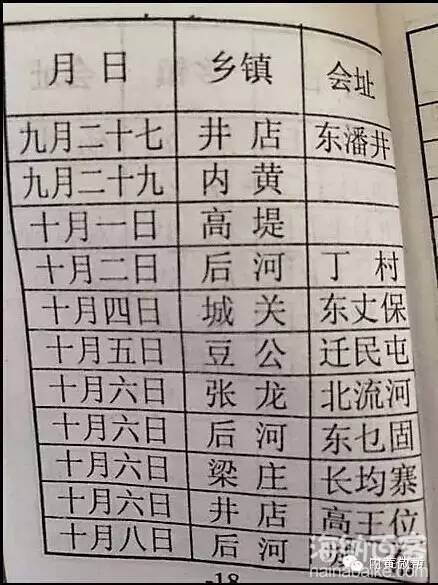 月 日 乡镇 会址
九月二十七 井店 东潘井
九月二十九 内黄
十月一日 高堤
十月二日 后河 丁村
十月四日 城关 东丈保
十月五日 豆公 迁民屯
十月六日 张龙 北流河
十月六日 后河 东乜固
十月六日 梁庄 长均寨
十月六日 井店 高王位
十月八日 后河
-18
海纳百家
nainabaike.com